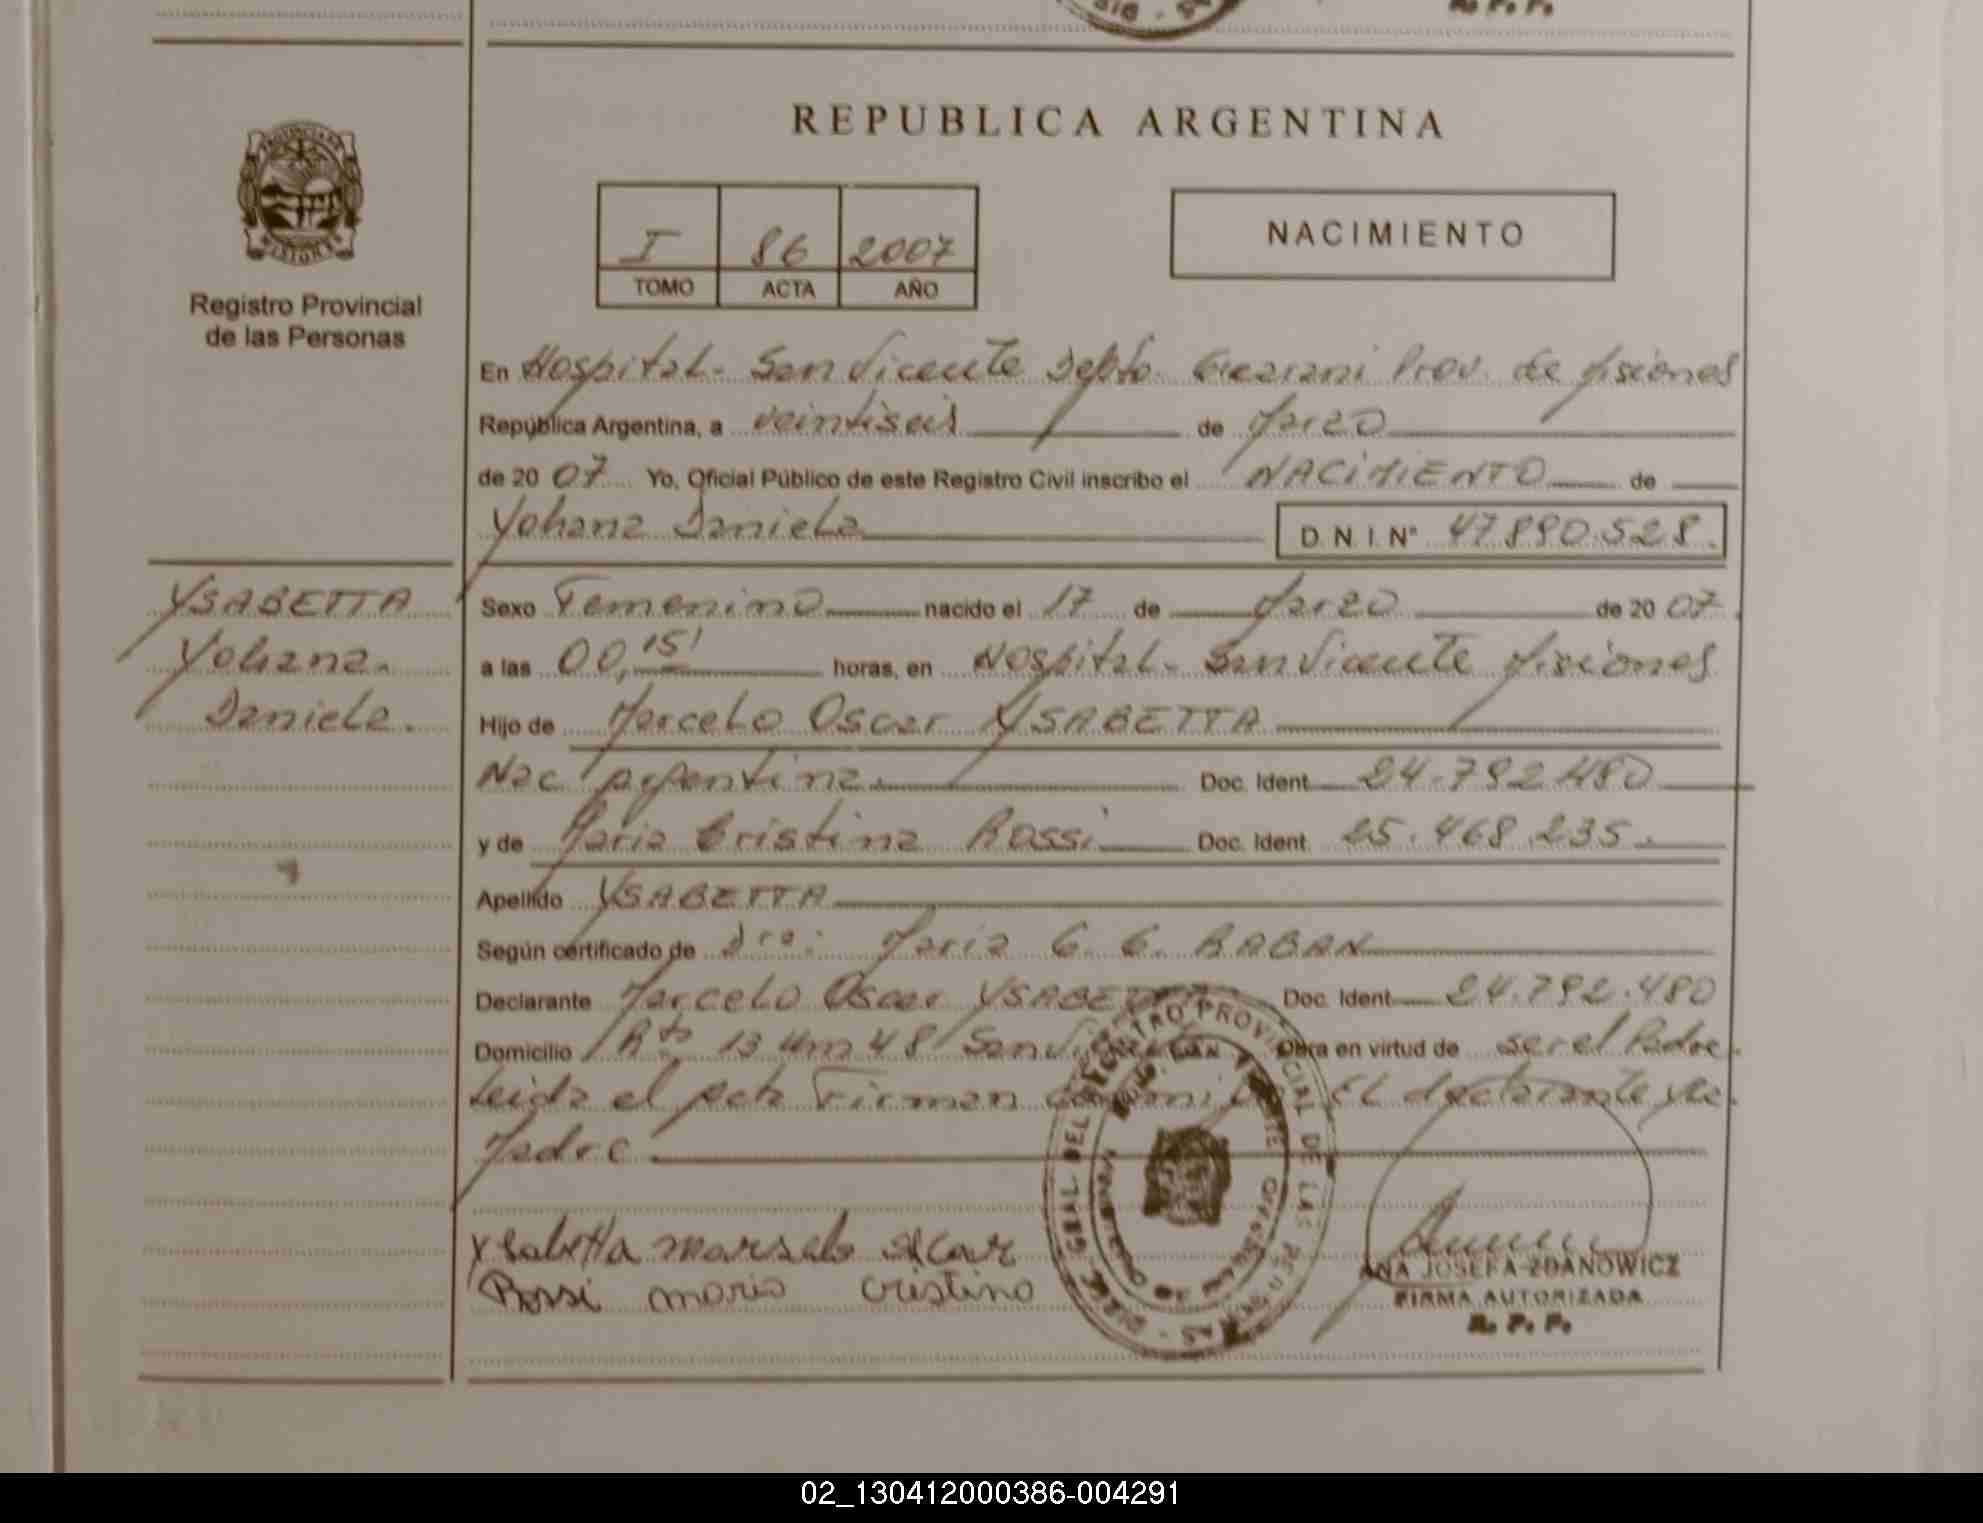 R. P. P.
REPUBLICA ARGENTINA
PROVINCIA DE MISIONES
Registro Provincial
de las Personas
I 86 2007
TOMO ACTA AÑO
NACIMIENTO
En Hospital - San Vicente Depto. Guarani Prov. de Misiones
República Argentina, a veintiseis de Marzo
de 20 07 Yo, Oficial Público de este Registro Civil inscribo el NACIMIENTO de
Yohana Daniela D. N. I. N° 47.890.528.
YSABETTA
Yohana
Daniela.
Sexo Femenino nacido el 17 de Marzo de 20 07.
a las 00,15' horas, en Hospital - San Vicente Misiones
Hijo de Marcelo Oscar YSABETTA
Nac Argentina. Doc. Ident 24.792.480
y de Maria Cristina Rossi Doc. Ident 25.468.235.
Apellido YSABETTA
Según certificado de Dra: Maria G. G. RABAN
Declarante Marcelo Oscar YSABETTA Doc. Ident 24.792.480
Domicilio Rta 13 Km 48 San Vicente Obra en virtud de ser el Padre.
Leida el Acta Firman conmigo El declarante y la
Madre
Ysabetta Marselo Oscar
Rossi Maria Cristina
DIREC. GRAL. DEL REGISTRO PROVINCIAL DE LAS PERSONAS
ANA JOSEFA ZDANOWICZ
FIRMA AUTORIZADA
R. P. P.
02_130412000386-004291